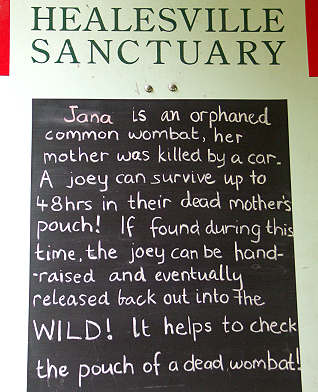 HEALESVILLE
SANCTUARY
Jana is an orphaned
common wombat, her
mother was killed by a car.
A joey can survive up to
48hrs in their dead mother's
pouch! If found during this
time, the joey can be hand-
-raised and eventually
released back out into the
WILD! It helps to check
the pouch of a dead wombat!